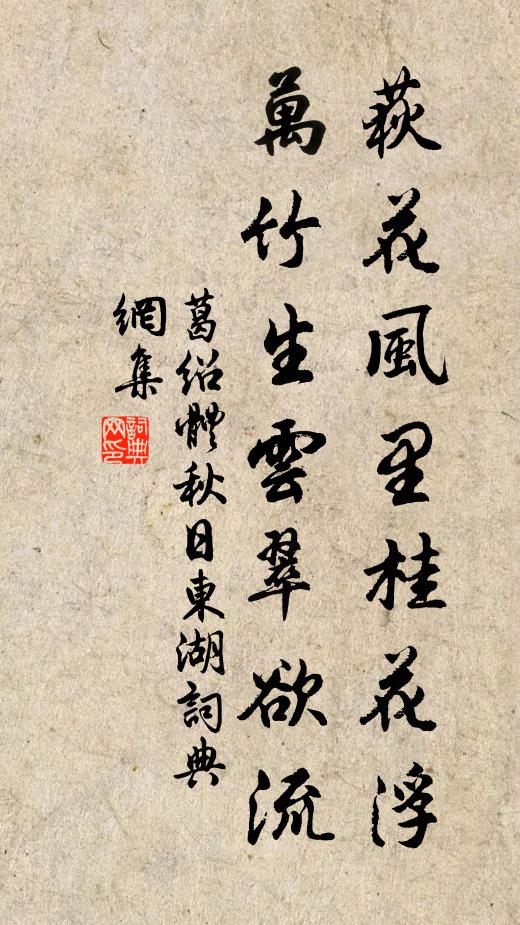 荻花風里桂花浮
萬竹生雲翠欲流
葛紹體秋日東湖詞典
網集
詞典網印